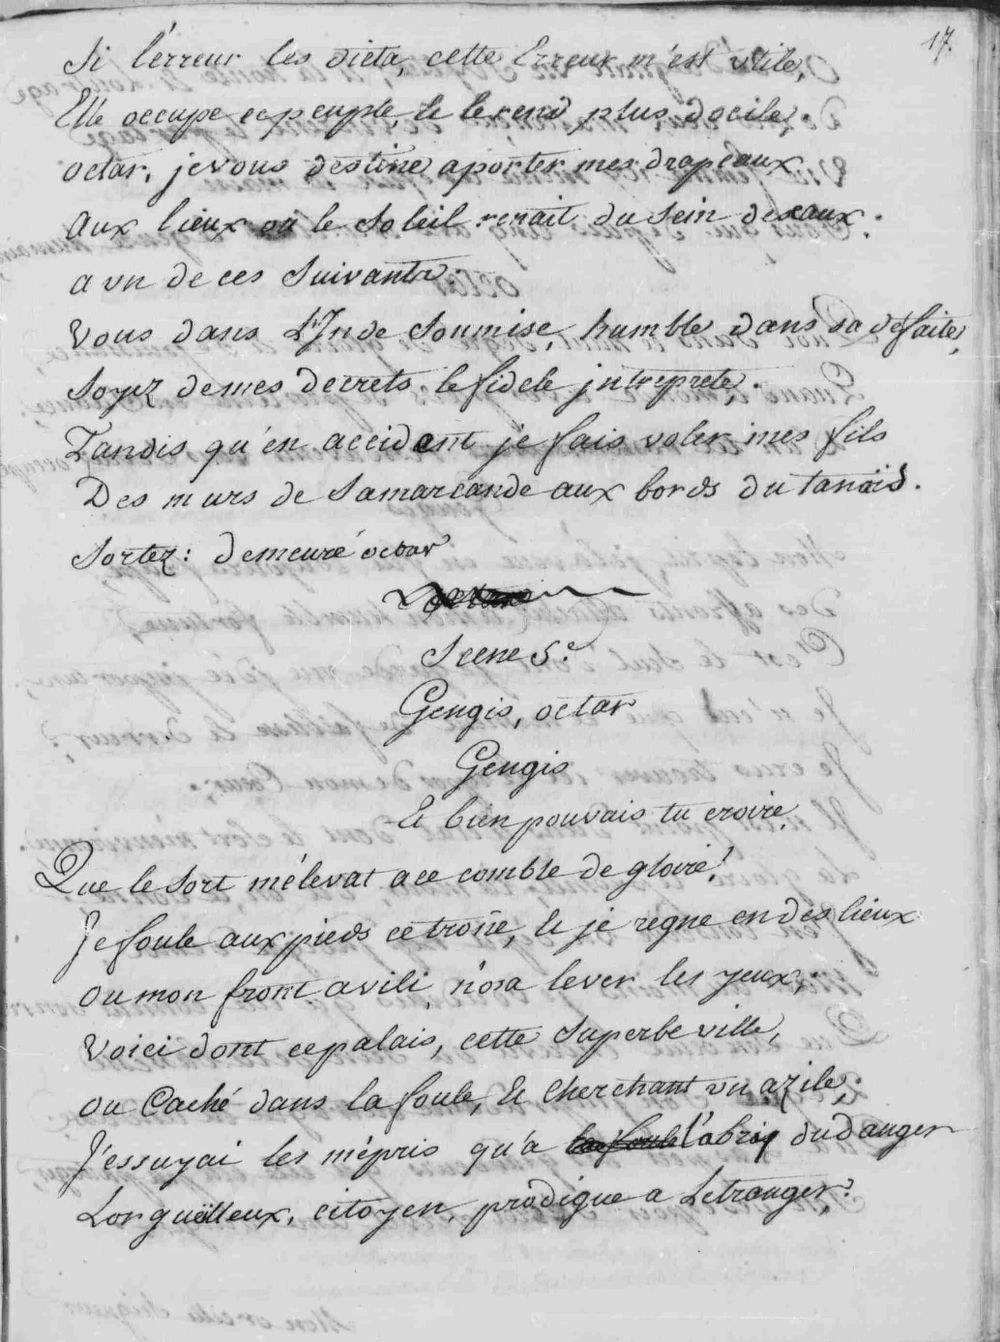 17.
Si l'érreur les dicta, cette Erreur m'est utile,
Elle occupe ce peuple, & le rend plus docile.
octar, je vous destine a porter mes drapeaux
aux lieux où le Soleil renait du Sein des eaux.
a un de ces Suivants
Vous dans L'Inde Soumise, humble dans sa défaite,
Soyez de mes decrets le fidele jnterprete,
Tandis qu'én accident je fais voler mes fils
Des murs de Samarcande aux bords du tanaïs.
Sortez: demeuré octar
Scene 5.e
Gengis, octar
Gengis
Et bien pouvais tu croire,
Que le Sort m'élevat a ce comble de gloire?
Je foule aux pieds ce trone, & je regne en des lieux
Ou mon front avili n'osa lever les yeux;
Voici dont ce palais, cette Superbe ville,
Ou Caché dans la foule, & Cherchant un azile,
J'essuyai les mépris qu'a la foule l'abri du danger
L'orguëilleux, citoyen, prodigue a Letranger.